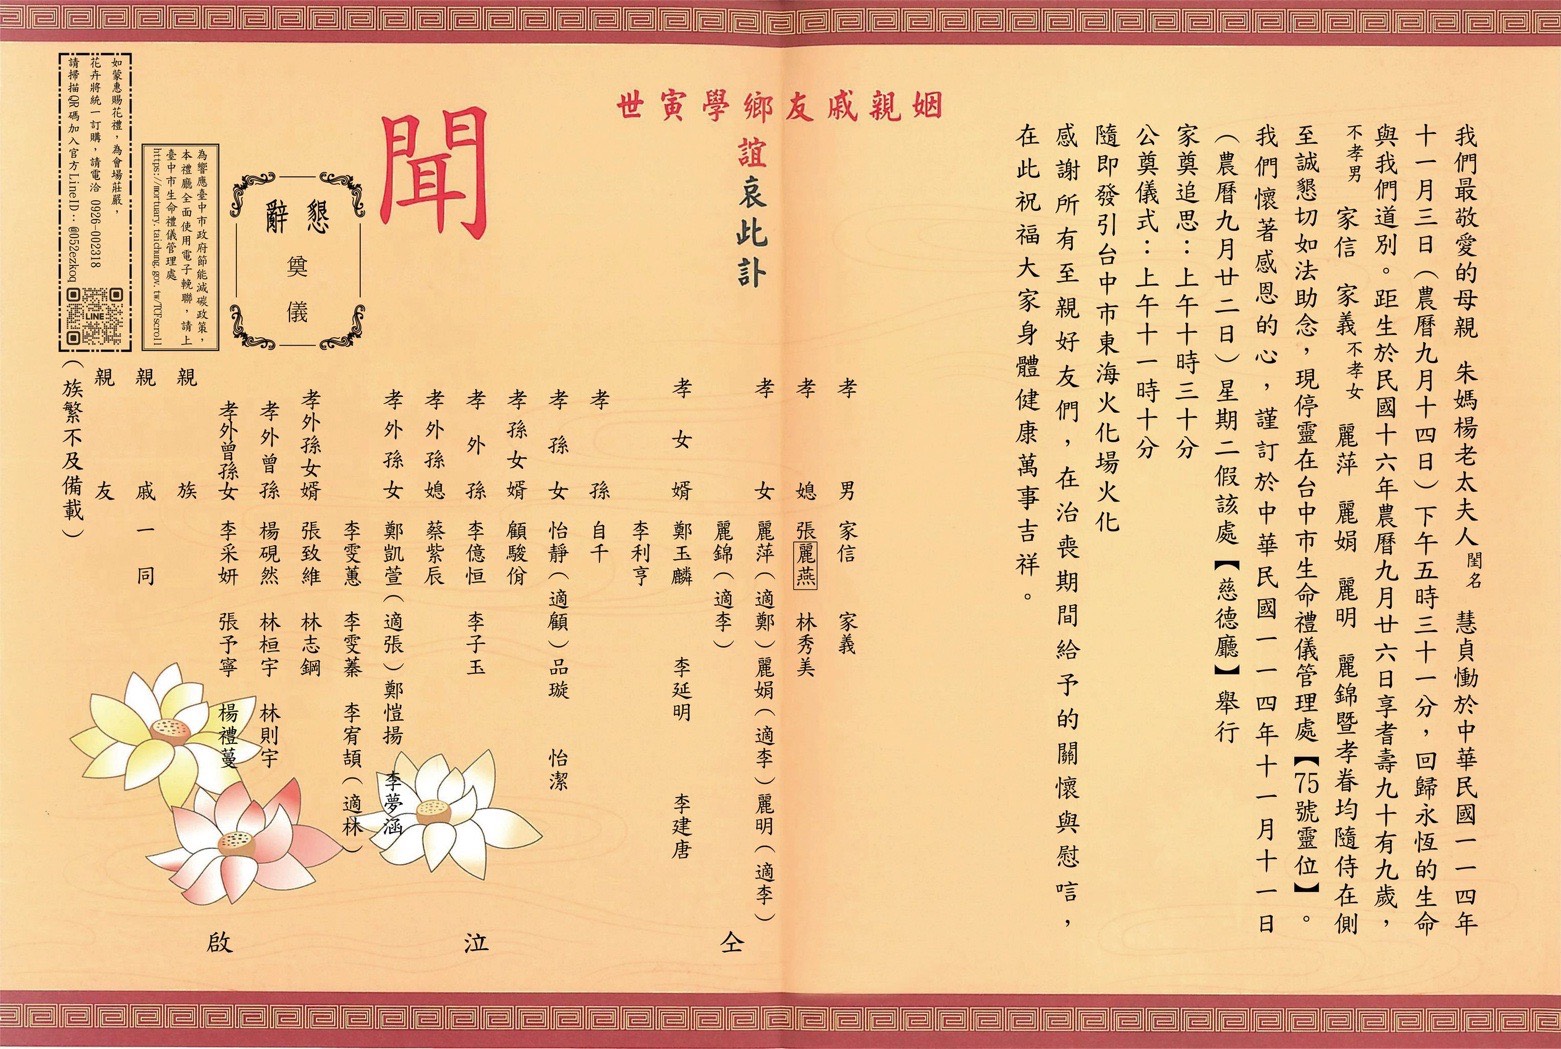 我們最敬愛的母親　朱媽楊老太夫人閨名　慧貞慟於中華民國一一四年
十一月三日（農曆九月十四日）下午五時三十一分，回歸永恆的生命
與我們道別。距生於民國十六年農曆九月廿六日享耆壽九十有九歲，
不孝男　家信　家義　不孝女　麗萍　麗娟　麗明　麗錦暨孝眷均隨侍在側
至誠懇切如法助念，現停靈在台中市生命禮儀管理處【75號靈位】。
我們懷著感恩的心，謹訂於中華民國一一四年十一月十一日
（農曆九月廿二日）星期二假該處【慈德廳】舉行
家奠追思：上午十時三十分
公奠儀式：上午十一時十分
隨即發引台中市東海火化場火化
感謝所有至親好友們，在治喪期間給予的關懷與慰唁，
在此祝福大家身體健康萬事吉祥。
姻親戚友鄉學寅世
誼哀此訃
聞
孝男　家信　家義
孝媳　張麗燕　林秀美
孝女　麗萍（適鄭）麗娟（適李）麗明（適李）
麗錦（適李）
孝女婿　鄭玉麟　李延明　李建唐
李利亨
孝孫　自千
孝孫女　怡靜（適顧）品璇　怡潔
孝孫女婿　顧駿佾
孝外孫　李億恒　李子玉
孝外孫媳　蔡紫辰
孝外孫女　鄭凱萱（適張）鄭愷揚　李夢涵
李雯蕙　李雯蓁　李宥頡（適林）
孝外孫女婿　張致維　林志鋼
孝外曾孫　楊硯然　林桓宇　林則宇
孝外曾孫女　李采妍　張予寧　楊禮蔓
親族
親戚一同
親友
（族繁不及備載）
仝泣啟
懇辭
奠儀
為響應臺中市政府節能減碳政策，
本禮廳全面使用電子輓聯，請上
臺中市生命禮儀管理處
https://mortuary.taichung.gov.tw/TCFscroll
如蒙惠賜花禮，為會場莊嚴，
花卉將統一訂購，請電洽 0926-002318
請掃描QR碼加入官方LineID：@052ezkoq
LINE